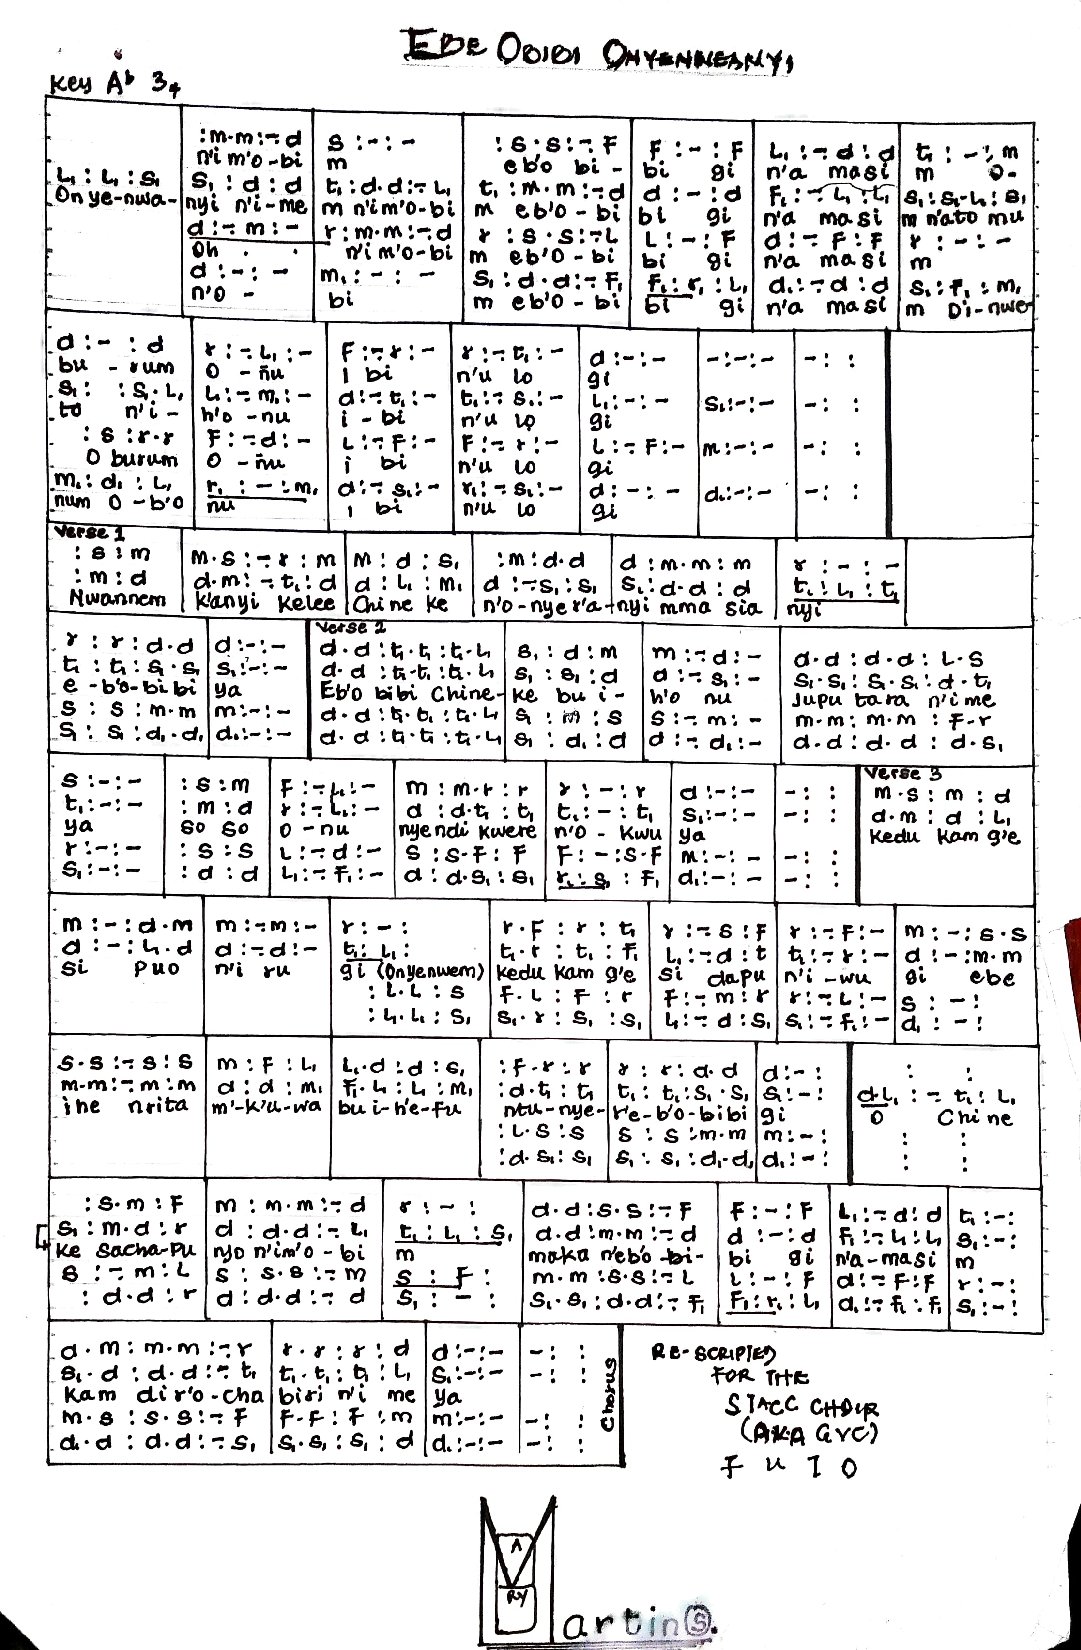 EBE OBIBI ONYENWEANYI
Key Ab 3/4
:m·m:-·d | s:-:- | :s·s:-·F | F:-:F | L₁:-·d:d | t₁:-:m
n'i m'o-bi | m | eb'o bi- | bi gi | n'a masi | m O-
L₁:L₁:s₁ | s₁:d:d | t₁:d·d:-·L₁ | t₁:m·m:-·d | d:-:d | F₁:-·L₁:L₁ | s₁:s₁·L₁:s₁
Onye-nwa- | nyi n'i-me | m n'im'o-bi | m eb'o-bi | bi gi | n'a masi | m n'ato mu
d:-·m:- | r:m·m:-·d | r:s·s:-·L | L:-:F | d:-·F:F | r:-:-
Oh | n'i m'o-bi | m eb'o-bi | bi gi | n'a masi | m
d:-:- | m₁:-:- | s₁:d·d:-·F₁ | F₁:r₁:L₁ | d₁:-·d:d | s₁:F₁:m₁
n'o - | bi | m eb'o-bi | bi gi | n'a masi | m Di-nwe-
d:-:d | r:-·L₁:- | F:-·r:- | r:-·t₁:- | d:-:- | -:-:- | -: :
bu - rum | O -ñu | I bi | n'u lo | gi
s₁: :s₁·L₁ | L₁:-·m₁:- | d:-·t₁:- | t₁:-·s₁:- | L₁:-:- | s₁:-:- | -: :
to n'i- | h'o -nu | i - bi | n'u lọ | gi
:s:r·r | F:-·d:- | L:-·F:- | F:-·r:- | L:-·F:- | m:-:- | -: :
O burum | O -ñu | i bi | n'u lo | gi
m₁:d₁:L₁ | r₁:-:m₁ | d:-·s₁:- | r₁:-·s₁:- | d:-:- | d₁:-:- | -: :
num O-b'o | nu | I bi | n'u lo | gi
Verse 1
:s:m | m·s:-·r:m | m:d:s₁ | :m:d·d | d:m·m:m | r:-:-
:m:d | d·m:-·t₁:d | d:L₁:m₁ | d:-·s₁:s₁ | s₁:d·d:d | t₁:L₁:t₁
Nwannem | k'anyi kelee | Chine ke | n'o-nye r'a- | nyi mma sia | nyi
Verse 2
r:r:d·d | d:-:- | d·d:t₁·t₁:t₁·L₁ | s₁:d:m | m:-·d:- | d·d:d·d:L·s
t₁:t₁:s₁·s₁ | s₁:-:- | d·d:t₁·t₁:t₁·L₁ | s₁:s₁:d | d:-·s₁:- | s₁·s₁:s₁·s₁:d·t₁
e-b'o-bi bi | ya | Eb'o bibi Chine- | ke bu i- | h'o nu | Jupu tara n'ime
s:s:m·m | m:-:- | d·d:t₁·t₁:t₁·L₁ | s₁:m:s | s:-·m:- | m·m:m·m:F·r
s₁:s₁:d₁·d₁ | d₁:-:- | d·d:t₁·t₁:t₁·L₁ | s₁:d₁:d | d:-·d₁:- | d·d:d·d:d·s₁
Verse 3
s:-:- | :s:m | F:-·L₁:- | m:m·r:r | r:-:r | d:-:- | -: : | m·s:m:d
t₁:-:- | :m:d | r:-·L₁:- | d:d·t₁:t₁ | t₁:-:t₁ | s₁:-:- | -: : | d·m:d:L₁
ya | so so | o-nu | nyendi kwere | n'o-kwu | ya | kedu kam g'e
r:-:- | :s:s | L:-·d:- | s:s·F:F | F:-:s·F | m:-:- | -: :
s₁:-:- | :d:d | L₁:-·F₁:- | d:d·s₁:s₁ | r₁:s₁:F₁ | d₁:-:- | -: :
m:-:d·m | m:-·m:- | r:-: | r·F:r:t₁ | r:-·s:F | r:-·F:- | m:-:s·s
d:-:L₁·d | d:-·d:- | t₁:L₁: | t₁·r:t₁:F₁ | L₁:-·d:t | t₁:-·r:- | d:-:m·m
si puo | n'i ru | gi (Onyenwem) | kedu kam g'e | si dapu | n'i-wu | gi ebe
:L·L:s | F·L:F:r | F:-·m:r | r:-·L:- | s:-:
:L₁·L₁:s₁ | s₁·r:s₁:s₁ | L₁:-·d:s₁ | s₁:-·F₁:- | d:-:
s·s:-·s:s | m:F:L₁ | L₁·d:d:s₁ | :F·r:r | r:r:d·d | d:-: | : :
m·m:-·m:m | d:d:m₁ | F₁·L₁:L₁:m₁ | :d·t₁:t₁ | t₁:t₁:s₁·s₁ | s₁:-: | dL₁:-·t₁:L₁
ihe nrita | m'-k'u-wa | bu i-h'e-fu | ntu-nye- | r'e-b'o-bibi | gi | O Chine
:L·s:s | s:s:m·m | m:-: | : :
:d·s₁:s₁ | s₁:s₁:d₁·d₁ | d₁:-: | : :
:s·m:F | m:m·m:-·d | r:-: | d·d:s·s:-·F | F:-:F | L₁:-·d:d | t₁:-:
s₁:m·d:r | d:d·d:-·L₁ | t₁:L₁:s₁ | d·d:m·m:-·d | d:-:d | F₁:-·L₁:L₁ | s₁:-:
ke sacha-pu | nyo n'im'o-bi | m | maka n'eb'o-bi- | bi gi | n'a-masi | m
s:-·m:L | s:s·s:-·m | s:F: | m·m:s·s:-·L | L:-:F | d:-·F:F | r:-:
:d·d:r | d:d·d:-·d | s₁:-: | s₁·s₁:d·d:-·F₁ | F₁:r₁:L₁ | d₁:-·F₁:F₁ | s₁:-:
d·m:m·m:-·r | r·r:r:d | d:-:- | -: :
s₁·d:d·d:-·t₁ | t₁·t₁:t₁:L₁ | s₁:-:- | -: :
kam dir'o-cha | biri n'i me | ya
m·s:s·s:-·F | F·F:F:m | m:-:- | -: :
d·d:d·d:-·s₁ | s₁·s₁:s₁:d | d₁:-:- | -: :
Chorus
RE-SCRIPTED
FOR THE
STACC CHOIR
(AKA GVC)
F U T O
A
RY
Martin(S).